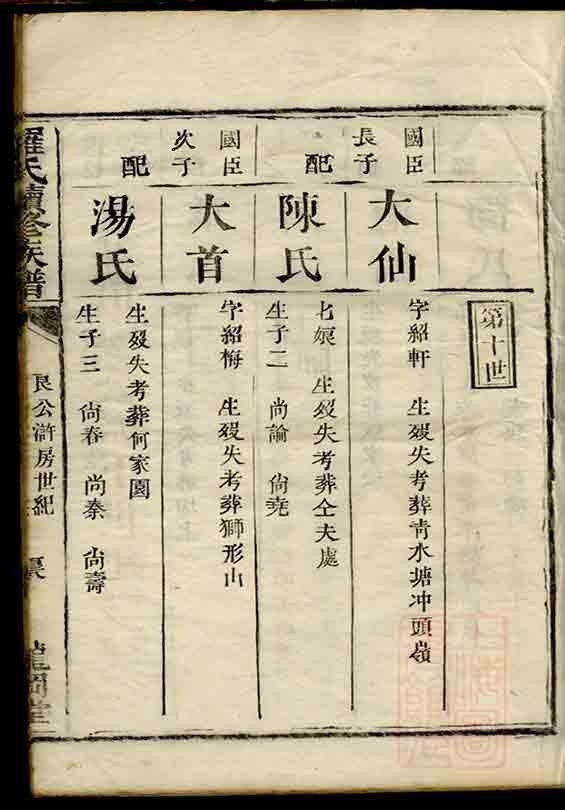 第十世
國臣
長子
大仙
字紹軒 生歿失考葬青水塘冲頭嶺
配
陳氏
七娘 生歿失考葬仝夫處
生子二 尚論 尙堯
國臣
次子
大首
字紹梅 生歿失考葬獅形山
配
湯氏
生歿失考葬何家園
生子三 尙春 尚秦 尙壽
羅氏續修族譜
良公滸房世紀